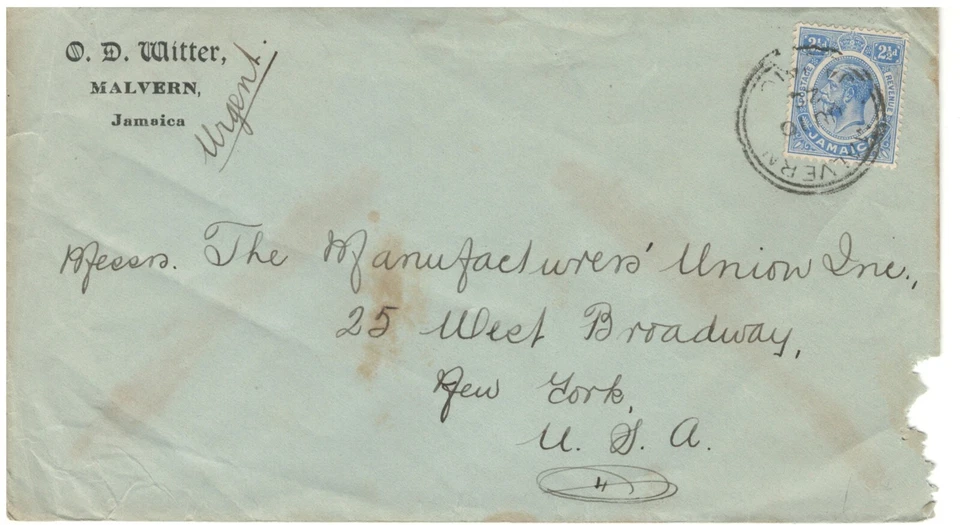 O. D. Witter,
MALVERN,
Jamaica
Urgent.
2½d
2½d
POSTAGE
REVENUE
JAMAICA
MALVERN
Messrs. The Manufacturers' Union Inc.,
25 West Broadway,
New York,
U. S. A.